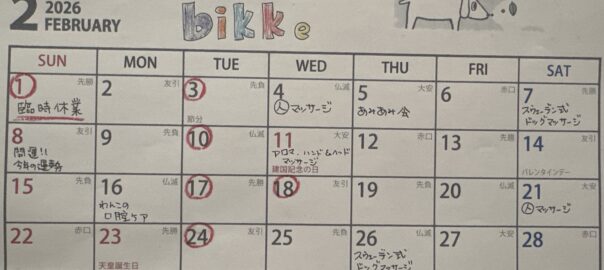 2 2026 FEBRUARY bikke
SUN MON TUE WED THU FRI SAT
1 先勝 2 友引 3 先負 4 仏滅 5 大安 6 赤口 7 先勝
臨時休業 節分 人 マッサージ あみあみ会 スウェーデン式 ドッグマッサージ
8 友引 9 先負 10 仏滅 11 大安 12 赤口 13 先勝 14 友引
開運!!
今年の運勢
アロマ、ハンド&ヘッド
マッサージ
建国記念の日 バレンタインデー
15 先負 16 仏滅 17 先勝 18 友引 19 先負 20 仏滅 21 大安
わんこの
口腔ケア
人 マッサージ
22 赤口 23 先勝 24 友引 25 先負 26 仏滅 27 大安 28 赤口
天皇誕生日
スウェーデン式
ドッグマッサージ